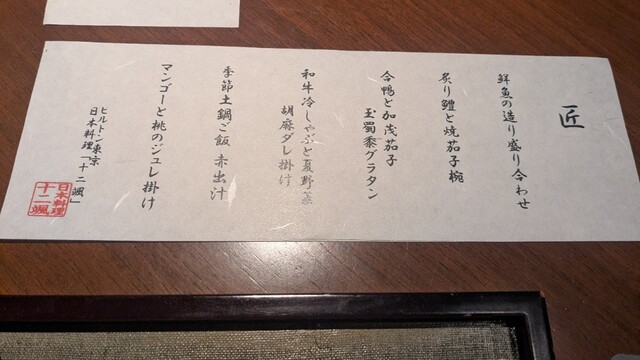 匠
鮮魚の造り盛り合わせ
炙り鱧と焼茄子椀
合鴨と加茂茄子
玉蜀黍グラタン
和牛冷しゃぶと夏野菜
胡麻ダレ掛け
季節土鍋ご飯 赤出汁
マンゴーと桃のジュレ掛け
ヒルトン東京
日本料理「十二颯」
日本料理
十二颯